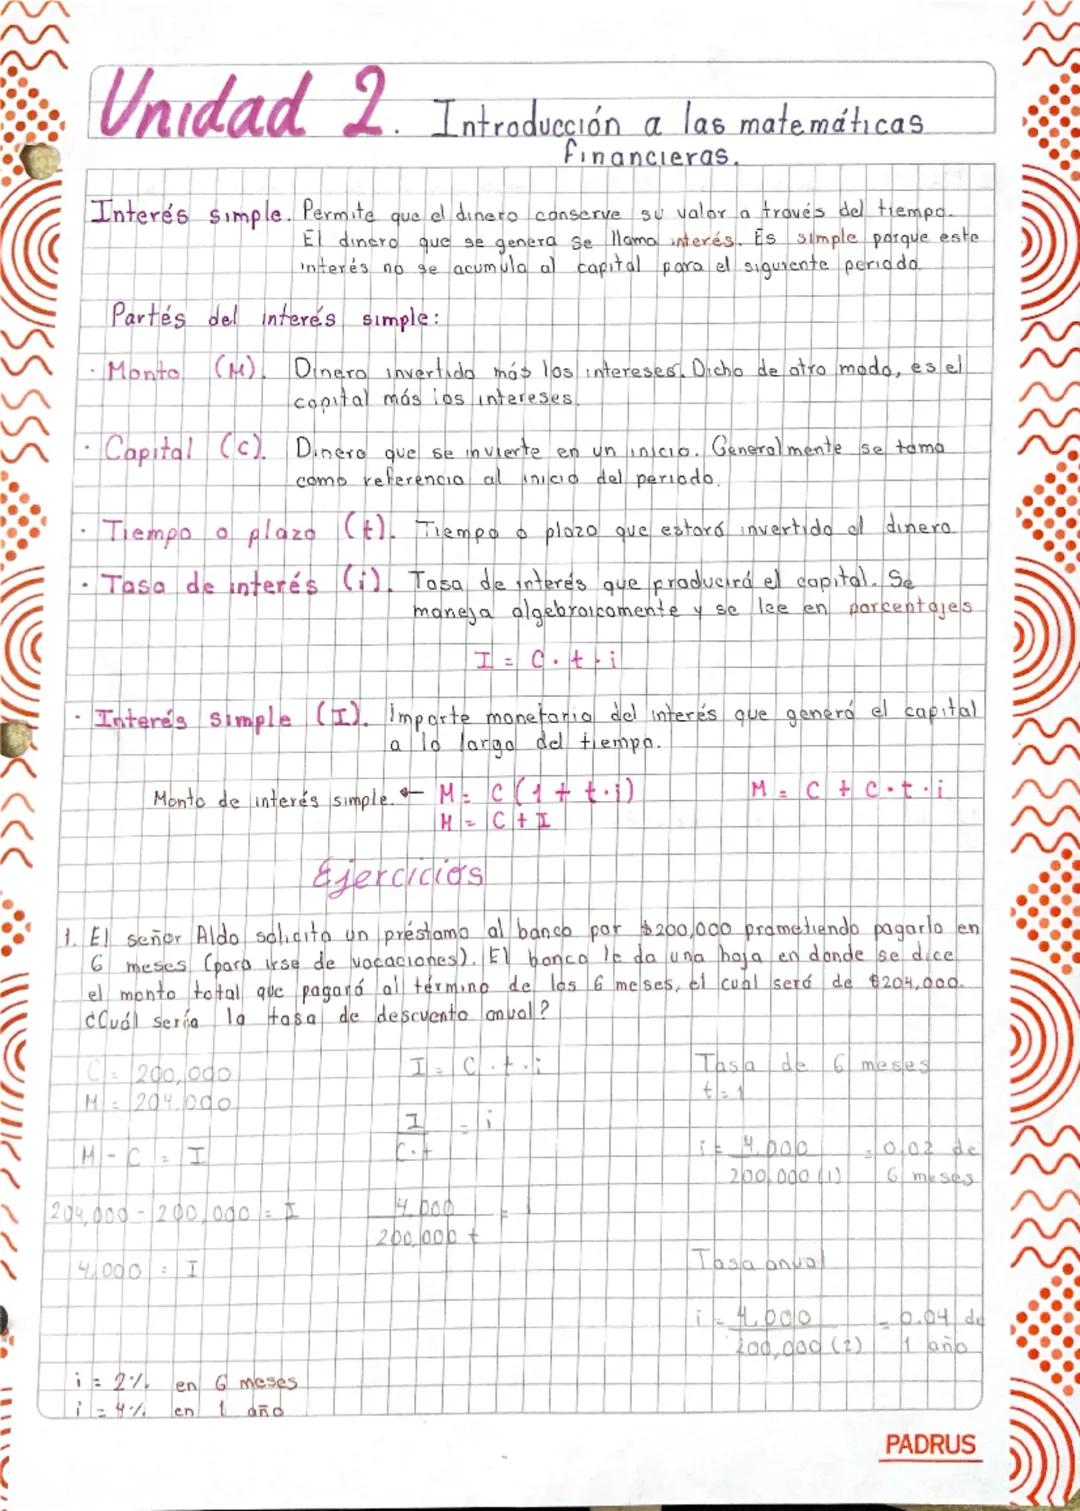 Unidad 2. Introducción a las matemáticas
financieras.
Interés simple. Permite que el dinero conserve su valor a través del tiempo.
El dinero que se genera se llama interés. Es simple porque este
interés no se acumula al capital para el siguiente periodo.
Partés del interés simple:
· Monto (M). Dinero invertido más los intereses. Dicho de otro modo, es el
capital más los intereses.
· Capital (C). Dinero que se invierte en un inicio. Generalmente se toma
como referencia al inicio del periodo.
· Tiempo o plazo (t). Tiempo o plazo que estará invertido el dinero.
· Tasa de interés (i). Tasa de interés que producirá el capital. Se
maneja algebraicamente y se lee en porcentajes
I = C · t · i
· Interés simple (I). Importe monetario del interés que generó el capital
a lo largo del tiempo.
Monto de interés simple. ← M = C (1 + t·i) M = C + C·t·i
M = C + I
Ejercicios
1. El señor Aldo solicita un préstamo al banco por $200,000 prometiendo pagarlo en
6 meses (para irse de vacaciones). El banco le da una hoja en donde se dice
el monto total que pagará al término de los 6 meses, el cual será de $204,000.
¿Cuál sería la tasa de descuento anual?
C = 200,000 I = C · t · i Tasa de 6 meses
M = 204,000 t = 1
I / C·t = i
M - C = I i = 4,000 / 200,000 (1) = 0.02 de 6 meses
204,000 - 200,000 = I 4,000 / 200,000 t =
4,000 = I Tasa anual
i = 4,000 / 200,000 (2) = 0.04 de 1 año
i = 2% en 6 meses
i = 4% en 1 año
PADRUS